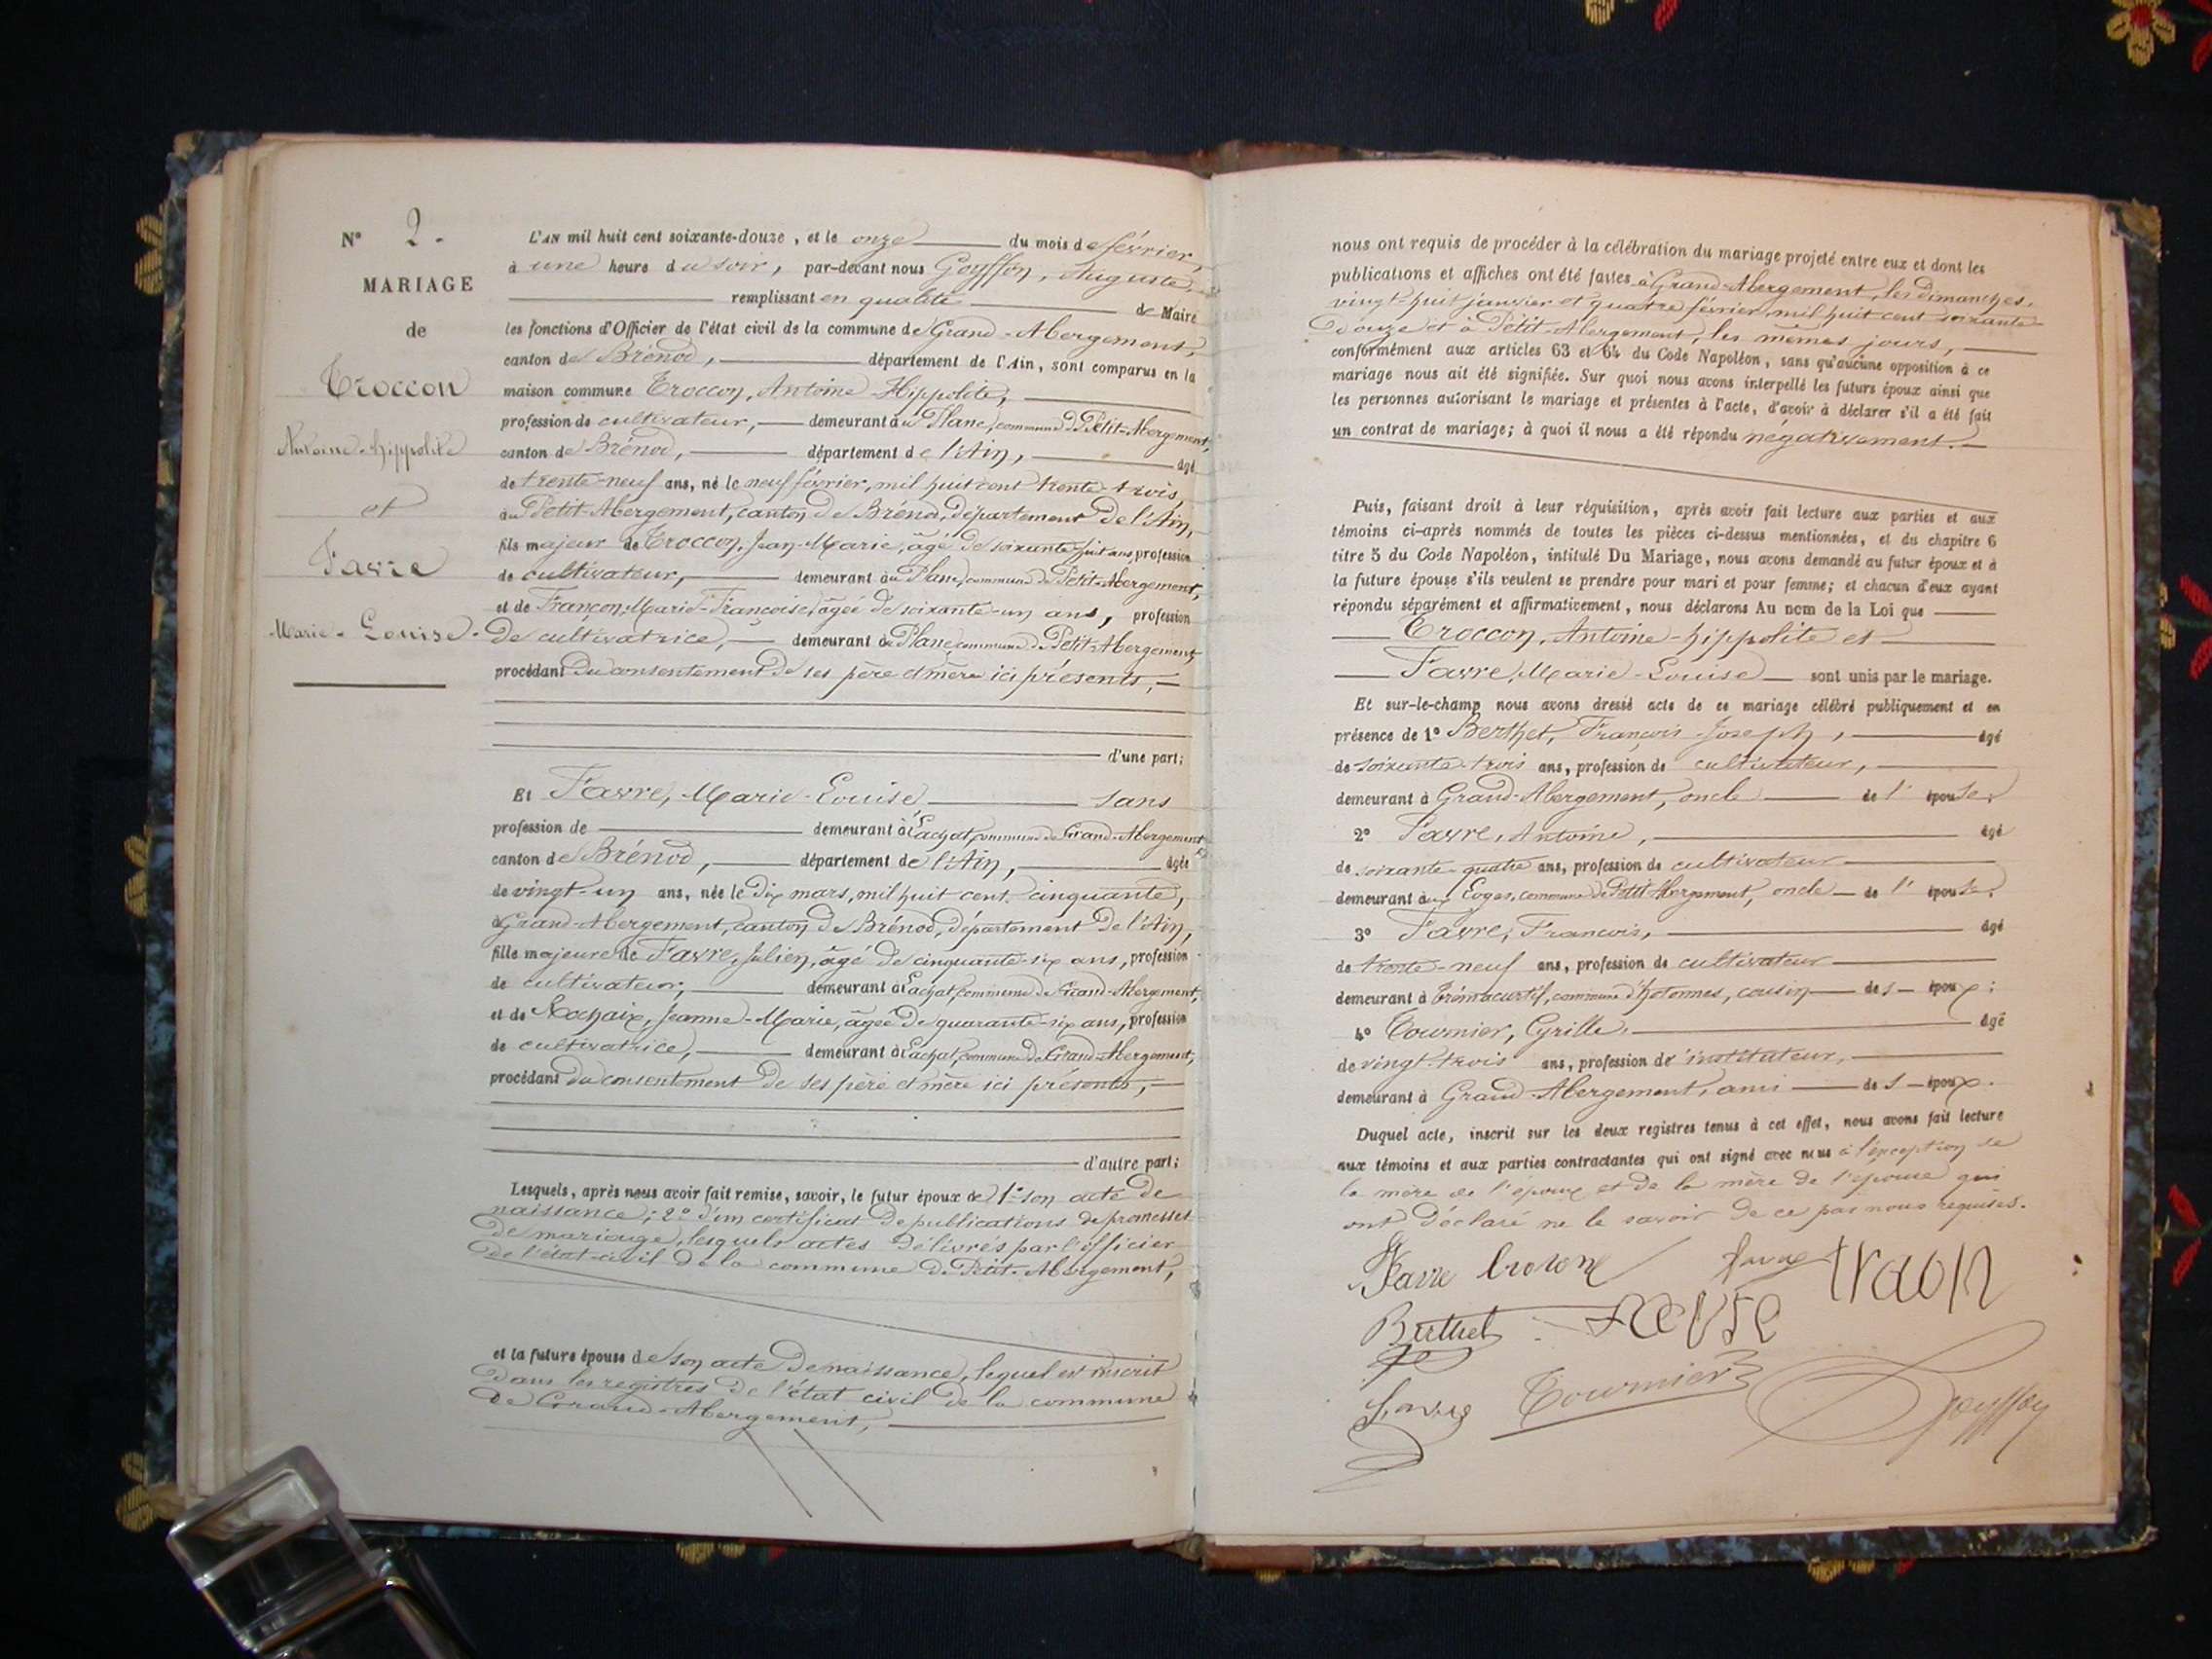 N° 2.
MARIAGE
de
Troccon
Antoine-Hippolite
et
Favre
Marie-Louise.
L'AN mil huit cent soixante-douze, et le onze du mois de février,
à une heure du soir, par-devant nous Goyffon, Auguste,
remplissant en qualité de Maire
les fonctions d'Officier de l'état civil de la commune de Grand-Abergement,
canton de Brénod, département de l'Ain, sont comparus en la
maison commune Troccon, Antoine-Hippolite,
profession de cultivateur, demeurant à Plane, commune de Petit-Abergement,
canton de Brénod, département de l'Ain, âgé
de trente-neuf ans, né le neuf février, mil huit cent trente-trois,
au Petit-Abergement, canton de Brénod, département de l'Ain,
fils majeur de Troccon, Jean-Marie, âgé de soixante-huit ans, profession
de cultivateur, demeurant à Plane, commune de Petit-Abergement,
et de Françon, Marie-Françoise, âgée de soixante-un ans, profession
de cultivatrice, demeurant à Plane, commune de Petit-Abergement,
procédant du consentement de ses père et mère ici présents,
d'une part;
Et Favre, Marie-Louise sans
profession de demeurant à Lachat, commune de Grand-Abergement
canton de Brénod, département de l'Ain, âgée
de vingt-un ans, née le dix mars, mil huit cent cinquante,
à Grand-Abergement, canton de Brénod, département de l'Ain,
fille majeure de Favre, Julien, âgé de cinquante-six ans, profession
de cultivateur, demeurant à Lachat, commune de Grand-Abergement,
et de Jeanne-Marie, âgée de quarante-six ans, profession
de cultivatrice, demeurant à Lachat, commune de Grand-Abergement,
procédant du consentement de ses père et mère ici présents,
d'autre part;
Lesquels, après nous avoir fait remise, savoir, le futur époux de 1° son acte de
naissance; 2° d'un certificat de publications de promesses
de mariage, lesquels actes délivrés par l'officier
de l'état-civil de la commune de Petit-Abergement,
et la future épouse de son acte de naissance, lequel est inscrit
dans les registres de l'état civil de la commune
de Grand-Abergement,
nous ont requis de procéder à la célébration du mariage projeté entre eux et dont les
publications et affiches ont été faites à Grand-Abergement, les dimanches,
vingt-huit janvier et quatre février, mil huit cent soixante
douze et à Petit-Abergement, les mêmes jours,
conformément aux articles 63 et 64 du Code Napoléon, sans qu'aucune opposition à ce
mariage nous ait été signifiée. Sur quoi nous avons interpellé les futurs époux ainsi que
les personnes autorisant le mariage et présentes à l'acte, d'avoir à déclarer s'il a été fait
un contrat de mariage; à quoi il nous a été répondu négativement.
Puis, faisant droit à leur réquisition, après avoir fait lecture aux parties et aux
témoins ci-après nommés de toutes les pièces ci-dessus mentionnées, et du chapitre 6
titre 5 du Code Napoléon, intitulé Du Mariage, nous avons demandé au futur époux et à
la future épouse s'ils veulent se prendre pour mari et pour femme; et chacun d'eux ayant
répondu séparément et affirmativement, nous déclarons Au nom de la Loi que
Troccon, Antoine-Hippolite et
Favre, Marie-Louise sont unis par le mariage.
Et sur-le-champ nous avons dressé acte de ce mariage célébré publiquement et en
présence de 1° Berthet, François-Joseph, âgé
de soixante-trois ans, profession de cultivateur,
demeurant à Grand-Abergement, oncle de l'épouse;
2° Favre, Antoine, âgé
de soixante-quatre ans, profession de cultivateur
demeurant aux Eoges, commune de Petit-Abergement, oncle de l'épouse;
3° Favre, François, âgé
de trente-neuf ans, profession de cultivateur
demeurant à commune d'Hotonnes, cousin des époux;
4° Tournier, Cyrille, âgé
de vingt-trois ans, profession d'instituteur,
demeurant à Grand-Abergement, ami des époux.
Duquel acte, inscrit sur les deux registres tenus à cet effet, nous avons fait lecture
aux témoins et aux parties contractantes qui ont signé avec nous à l'exception de
la mère de l'époux et de la mère de l'épouse qui
ont déclaré ne le savoir de ce par nous requises.
Favre
Berthet
Tournier
Goyffon